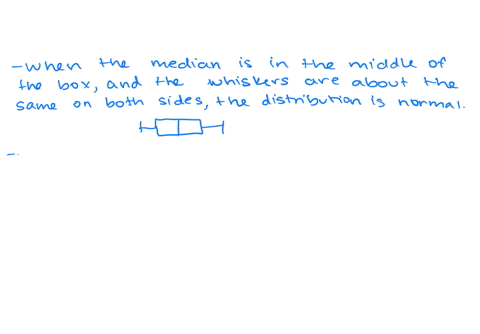 - When the median is in the middle of
the box, and the whiskers are about the
same on both sides, the distribution is normal.
-